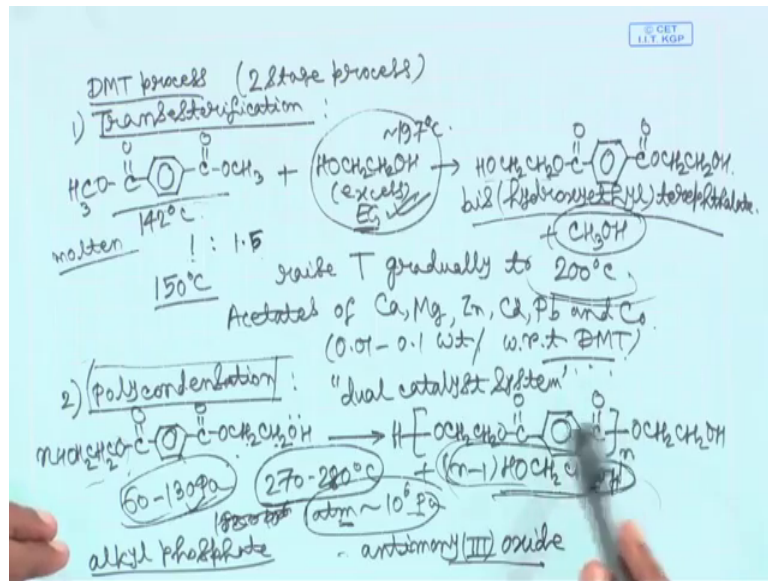 © CET
I.I.T. KGP
DMT process (2 stage process)
1) Transesterification :
H3CO-C(=O)-C(=O)-OCH3 + HOCH2CH2OH → HOCH2CH2O-C(=O)-C(=O)-OCH2CH2OH.
~197°C.
(excess)
EG
142°C
bis(hydroxyethyl) terephthalate.
+ CH3OH
molten
1 : 1.5
150°C
raise T gradually to 200°C
Acetates of Ca, Mg, Zn, Cd, Pb and Co
(0.01-0.1 wt/ w.r.t DMT)
2) Polycondensation : "dual catalyst system"
nHOCH2CH2O-C(=O)-C(=O)-OCH2CH2OH → H-[OCH2CH2O-C(=O)-C(=O)]n-OCH2CH2OH
+ (n-1) HOCH2
60-130Pa
270-280°C
atm ~ 10⁶ Pa
alkyl phosphate
antimony (III) oxide